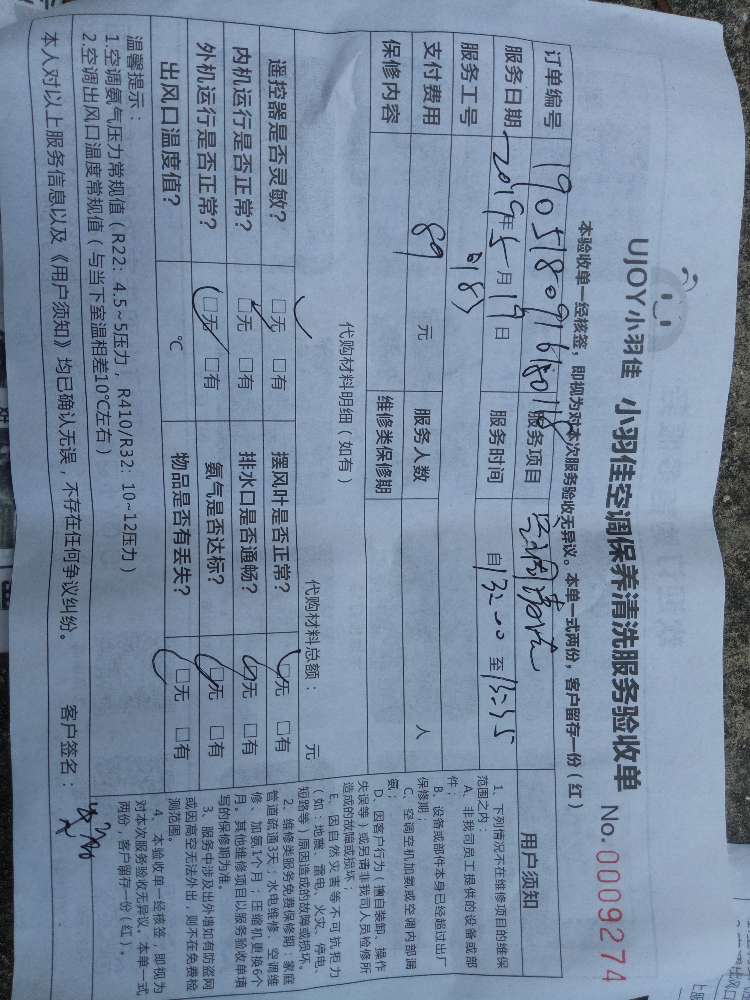 UJOY小羽佳 小羽佳空调保养清洗服务验收单 No.0009274
本验收单一经核签，即视为对本次服务验收无异议。本单一式两份，客户留存一份（红）
订单编号 服务项目
服务日期 2019年5月19日 服务时间 自13:00至13:35
服务工号 0187
支付费用 89 元 服务人数 人
保修内容 维修类保修期
代购材料明细（如有） 代购材料总额： 元
遥控器是否灵敏？ □无 □有 摆风叶是否正常？ □无 □有
内机运行是否正常？ □无 □有 排水口是否通畅？ □无 □有
外机运行是否正常？ □无 □有 氨气是否达标？ □无 □有
出风口温度值？ ℃ 物品是否有丢失？ □无 □有
温馨提示：
1.空调氨气压力常规值（R22：4.5~5压力，R410/R32：10~12压力）
2.空调出风口温度常规值（与当下室温相差10℃左右）
本人对以上服务信息以及《用户须知》均已确认无误，不存在任何争议纠纷。 客户签名：
用户须知
1、下列情况不在维修项目的维保
范围之内：
A、非我司员工提供的设备或部
件；
B、设备或部件本身已经超过出厂
保修期；
C、空调空机加氨或空调内部漏
氨；
D、因客户行为（擅自装卸、操作
失误等）或另请非我司人员检修所
造成的故障或损坏；
E、因自然灾害等不可抗拒力
（如：地震、雷电、火灾、停电、
短路等）原因造成的故障或损坏。
2、维修类服务免费保修期：家庭
管道疏通3天；水电维修、空调维
修、加氨1个月；压缩机更换6个
月。其他维修项目以服务验收单填
写的保修期为准。
3、服务中涉及出外墙如有防盗网
或因高空无法外出，则不在免费检
测范围。
4、本验收单一经核签，即视为
对本次服务验收无异议。本单一式
两份，客户留存一份（红）。